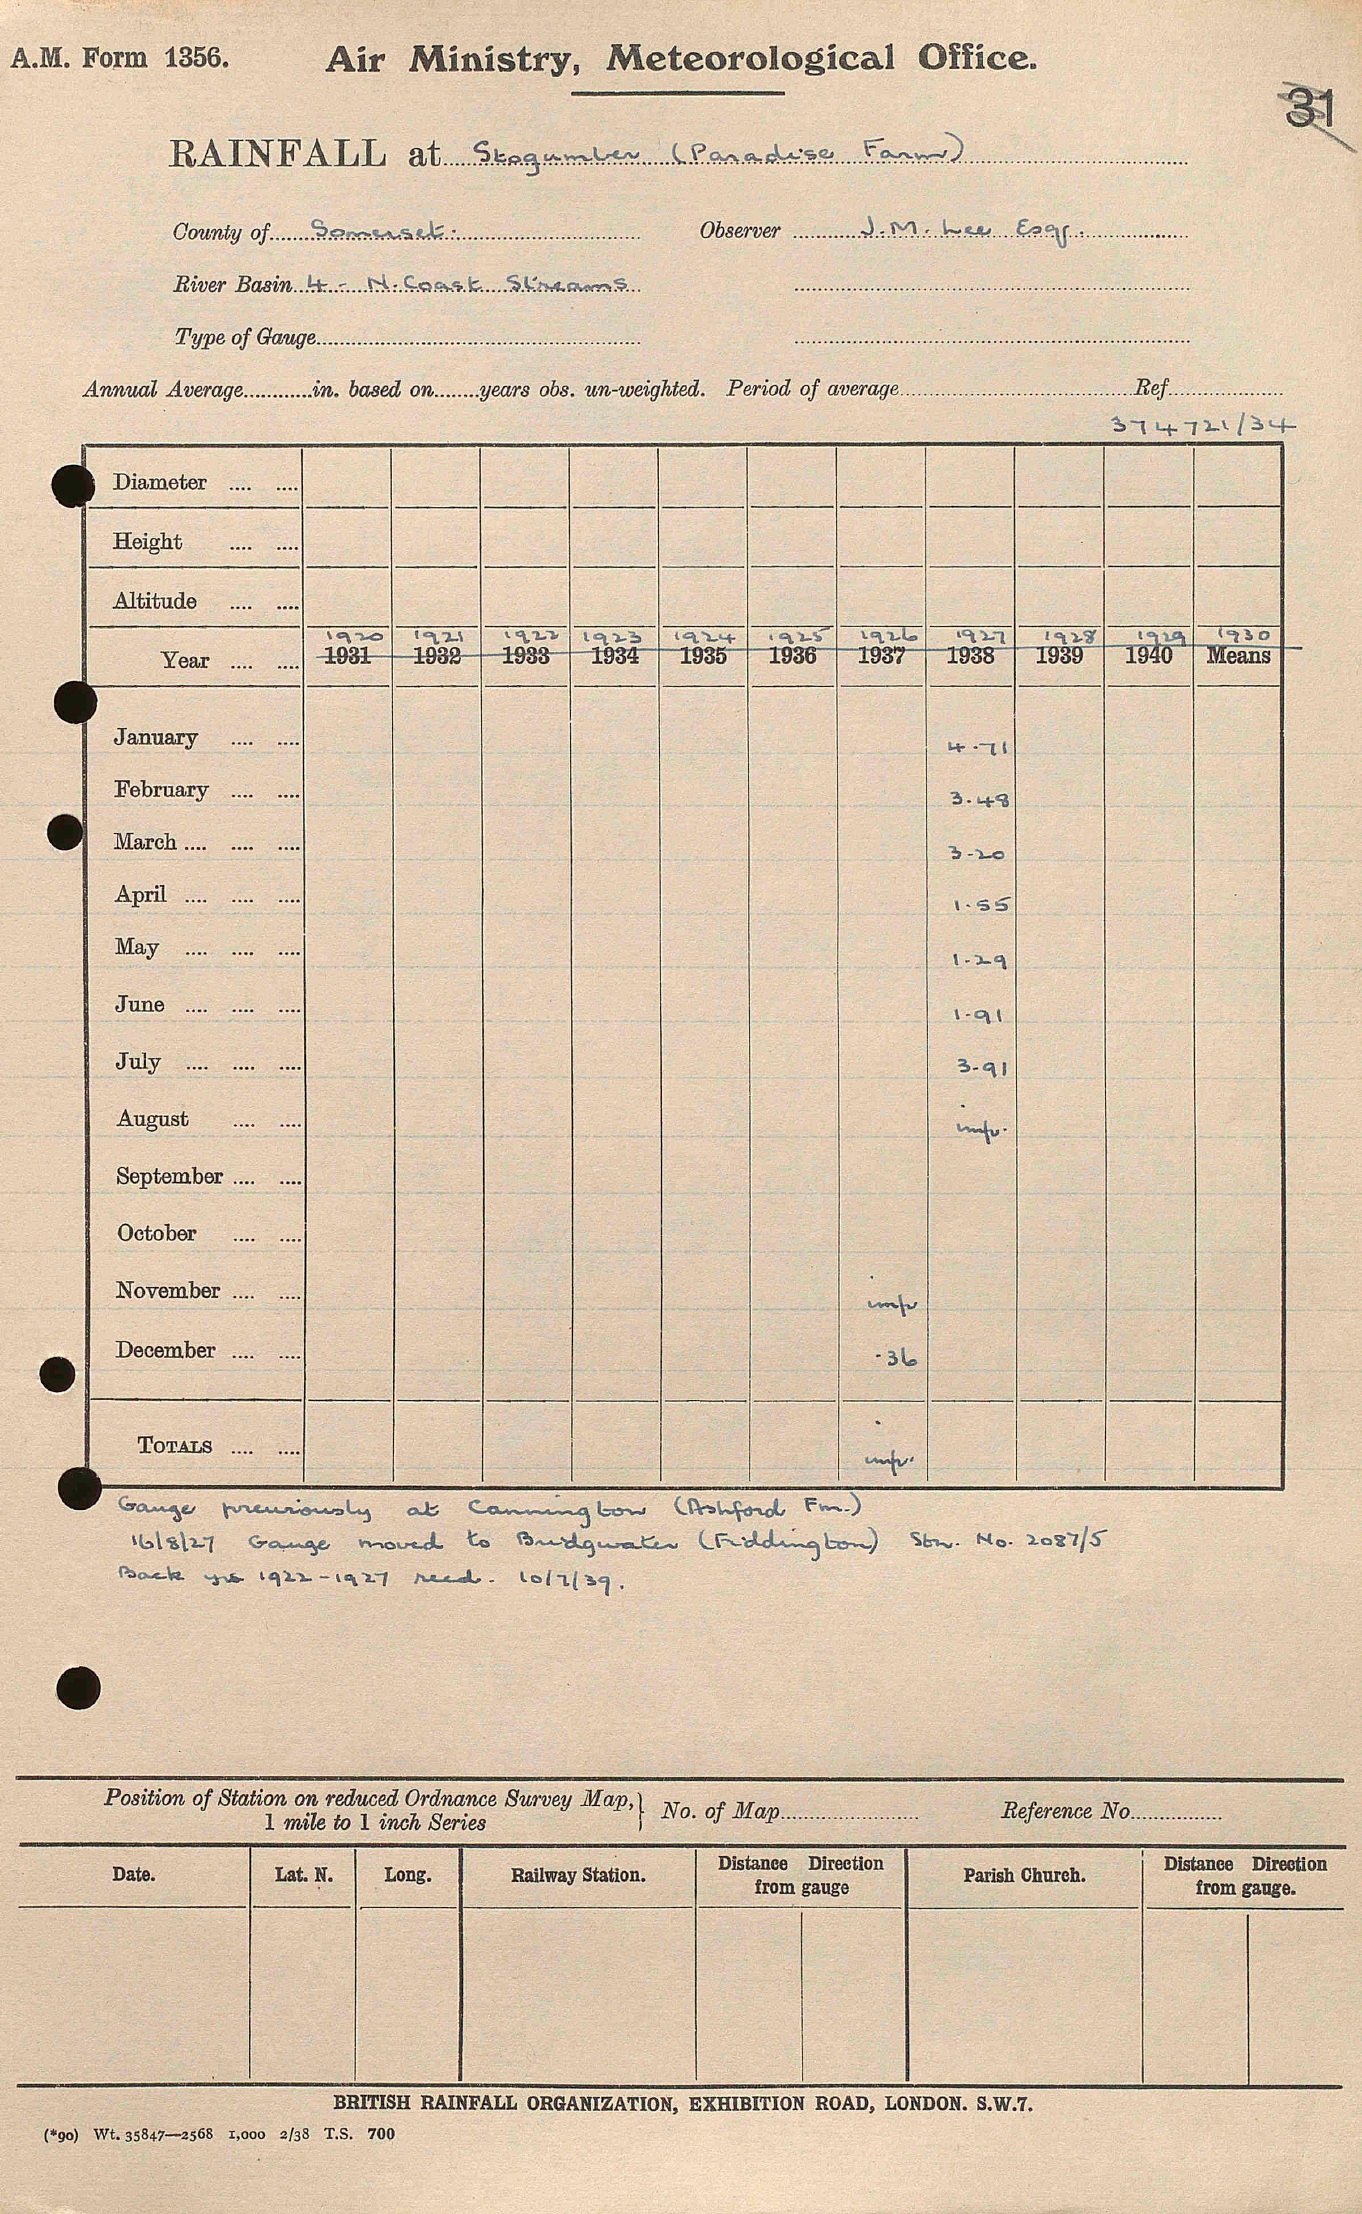 A.M. Form 1356. Air Ministry, Meteorological Office.
31
RAINFALL at Stogumber (Paradise Farm)
County of Somerset. Observer J.M. Lee Esq.
River Basin 4 - N. Coast Streams
Type of Gauge
Annual Average............in. based on........years obs. un-weighted. Period of average Ref.
374721/34
Diameter .... ....
Height .... ....
Altitude .... ....
1920 1921 1922 1923 1924 1925 1926 1927 1928 1929 1930
Year .... .... 1931 1932 1933 1934 1935 1936 1937 1938 1939 1940 Means
January .... .... 4.71
February .... .... 3.48
March .... .... .... 3.20
April .... .... .... 1.55
May .... .... .... 1.29
June .... .... .... 1.91
July .... .... .... 3.91
August .... .... imp.
September .... ....
October .... ....
November .... .... imp
December .... .... .36
TOTALS .... .... imp.
Gauge previously at Cannington (Ashford Fm.)
16/8/27 Gauge moved to Bridgwater (Fiddington) Stn. No. 2087/5
Back yrs 1922-1927 recd. 10/7/39.
Position of Station on reduced Ordnance Survey Map,} No. of Map Reference No.
1 mile to 1 inch Series
Date. Lat. N. Long. Railway Station. Distance Direction from gauge Parish Church. Distance Direction from gauge.
BRITISH RAINFALL ORGANIZATION, EXHIBITION ROAD, LONDON. S.W.7.
(*90) Wt. 35847—2568 1,000 2/38 T.S. 700